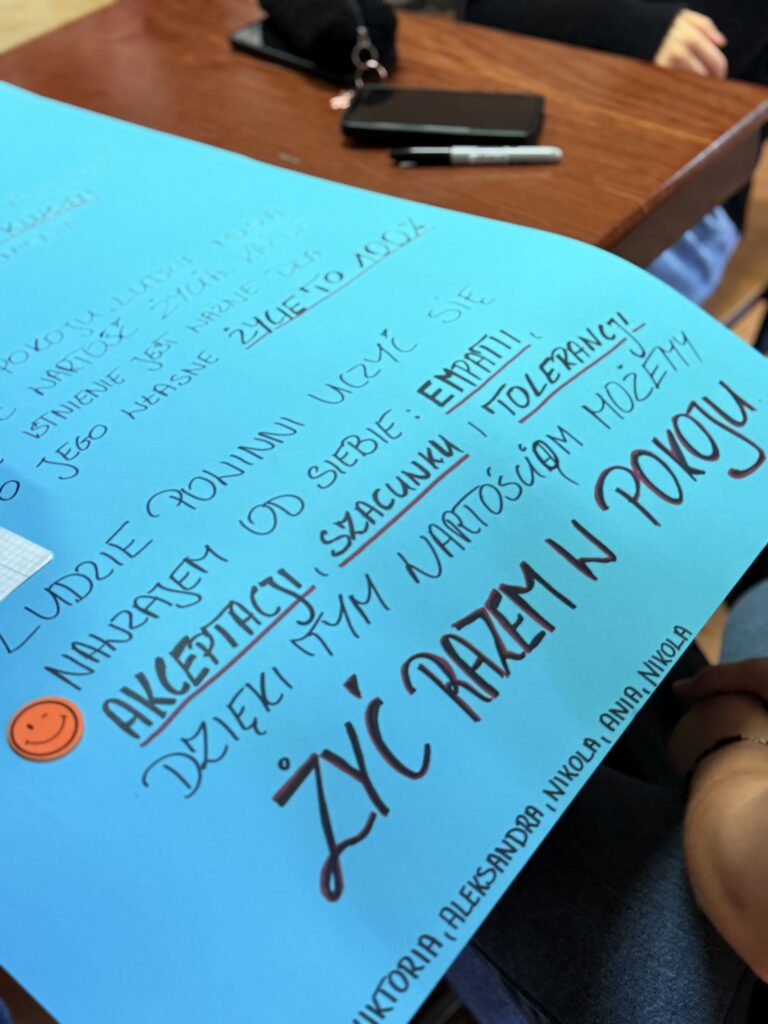 POKOJU, LUDZIE
WARTOŚĆ ŻYCIA
ISTNIENIE JEST WAŻNE DLA
JEGO WŁASNE ŻYCIE TO 100%
LUDZIE POWINNI UCZYĆ SIĘ
NAWZAJEM OD SIEBIE: EMPATII,
AKCEPTACJI, SZACUNKU I TOLERANCJI.
DZIĘKI TYM WARTOŚCIOM MOŻEMY
ŻYĆ RAZEM W POKOJU.
WIKTORIA, ALEKSANDRA, NIKOLA, ANIA, NIKOLA